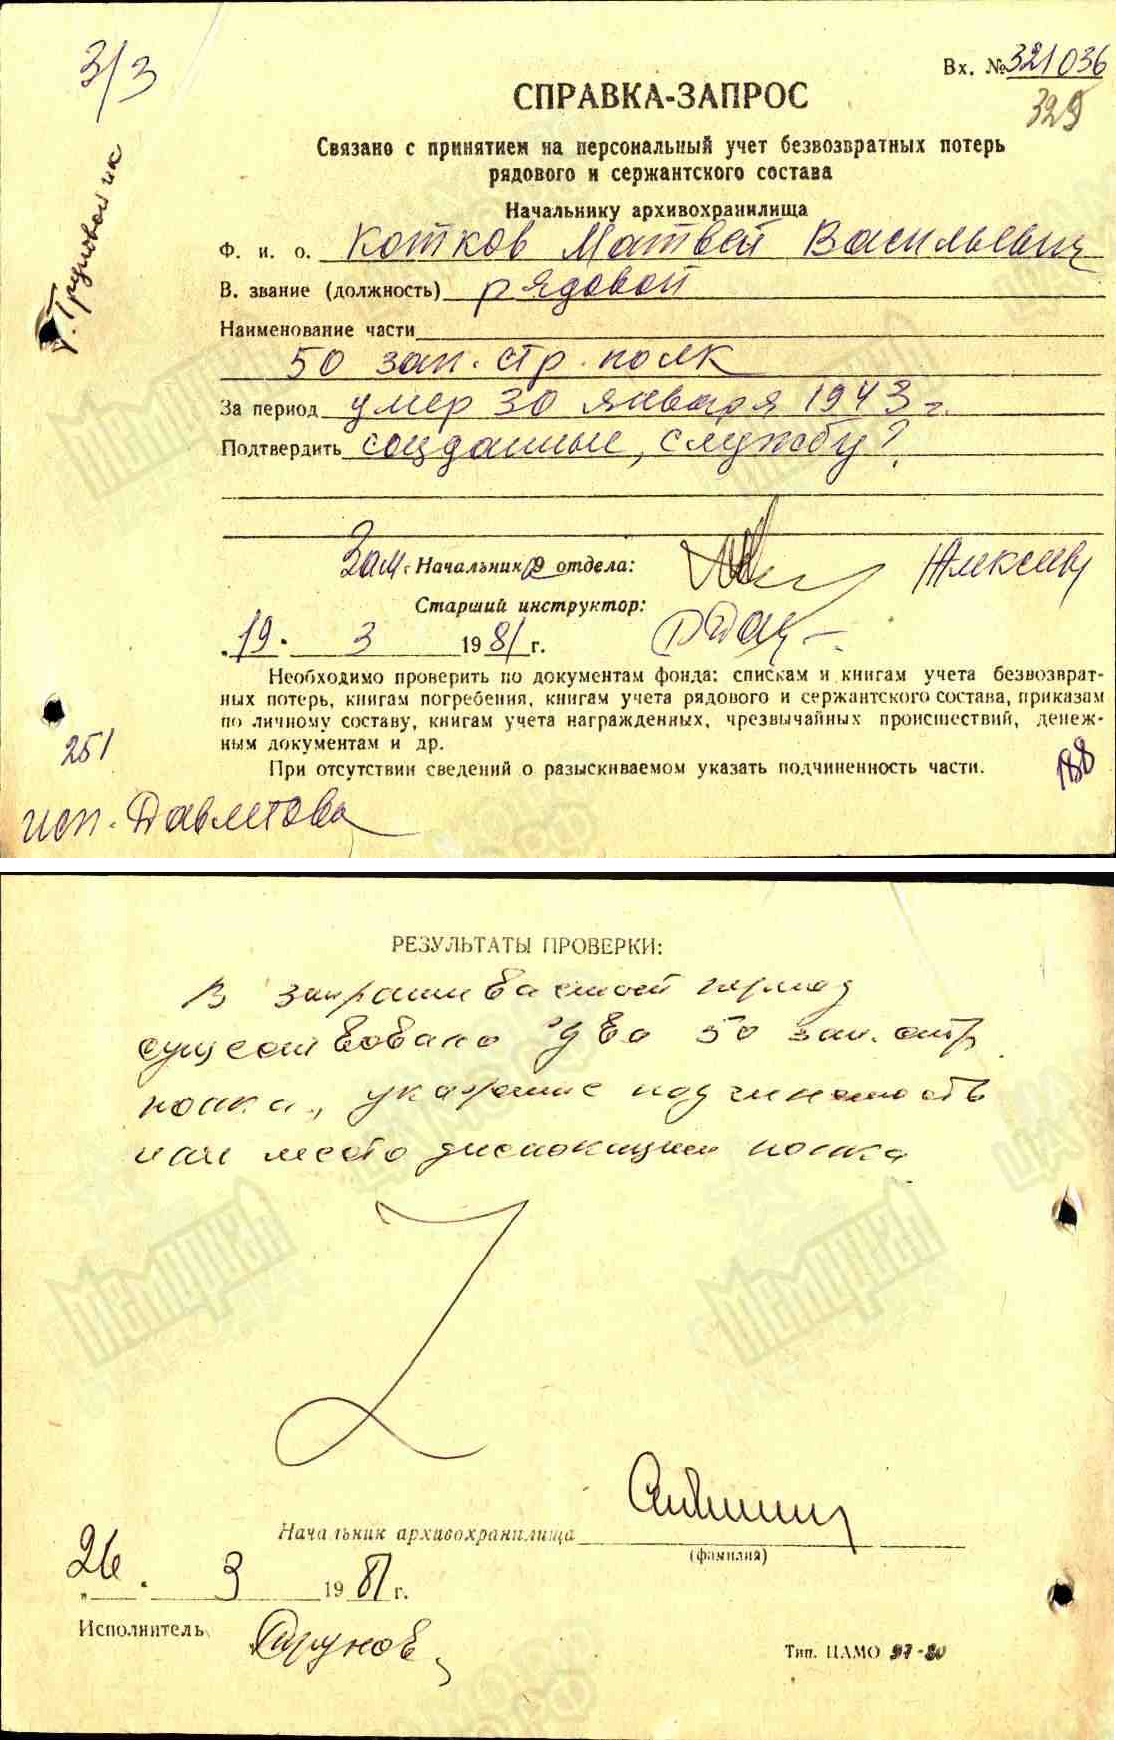 3/3
Вх. № 321036
329
СПРАВКА-ЗАПРОС
Связано с принятием на персональный учет безвозвратных потерь
рядового и сержантского состава
Начальнику архивохранилища
Ф. и. о. Котков Матвей Васильевич
В. звание (должность) рядовой
Наименование части
50 зап. стр. полк
За период умер 30 января 1943 г.
Подтвердить соцданные, службу?
Зам. Начальника отдела: Алексеев
Старший инструктор:
19. 3 1981 г.
Необходимо проверить по документам фонда: спискам и книгам учета безвозврат-
ных потерь, книгам погребения, книгам учета рядового и сержантского состава, приказам
по личному составу, книгам учета награжденных, чрезвычайных происшествий, денеж-
ным документам и др.
251
При отсутствии сведений о разыскиваемом указать подчиненность части.
188
исп. Давлетова
РЕЗУЛЬТАТЫ ПРОВЕРКИ:
В запрашиваемый период
существовало два 50 зап. стр.
полка, укажите подчиненность
или место дислокации полка
Начальник архивохранилища
(фамилия)
26. 3 1981 г.
Исполнитель
Тип. ЦАМО 97-80
Мемориал
Мемориал
Мемориал